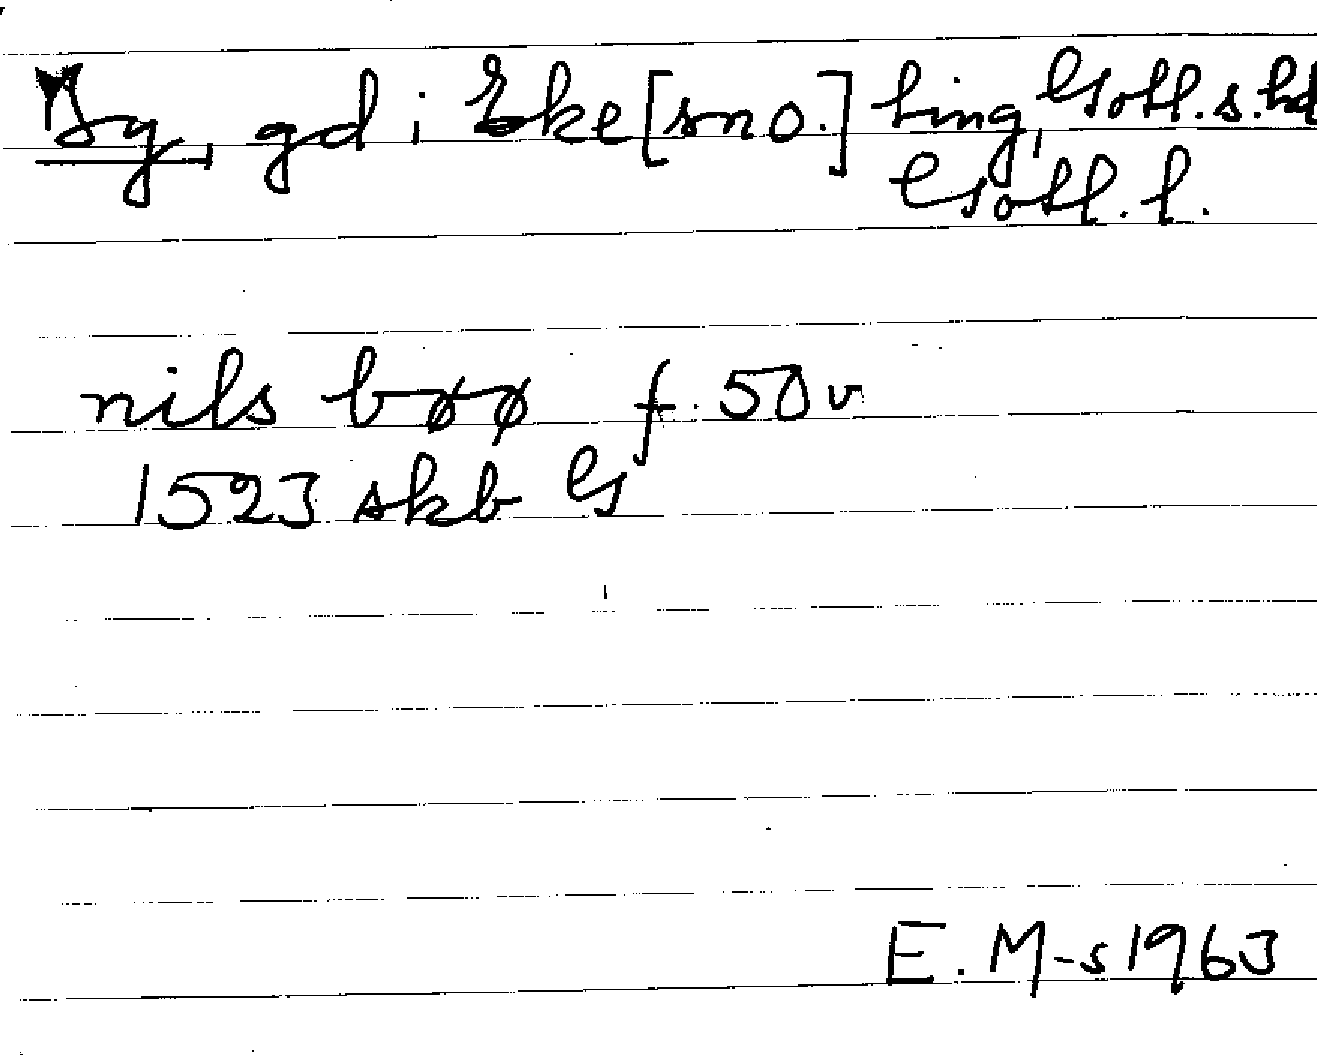 By, gd i Eke [sno.] ting, Gotl. s. hd
Gotl. l.
nils bøø f. 50v
1523 skb G
E. M-s 1963